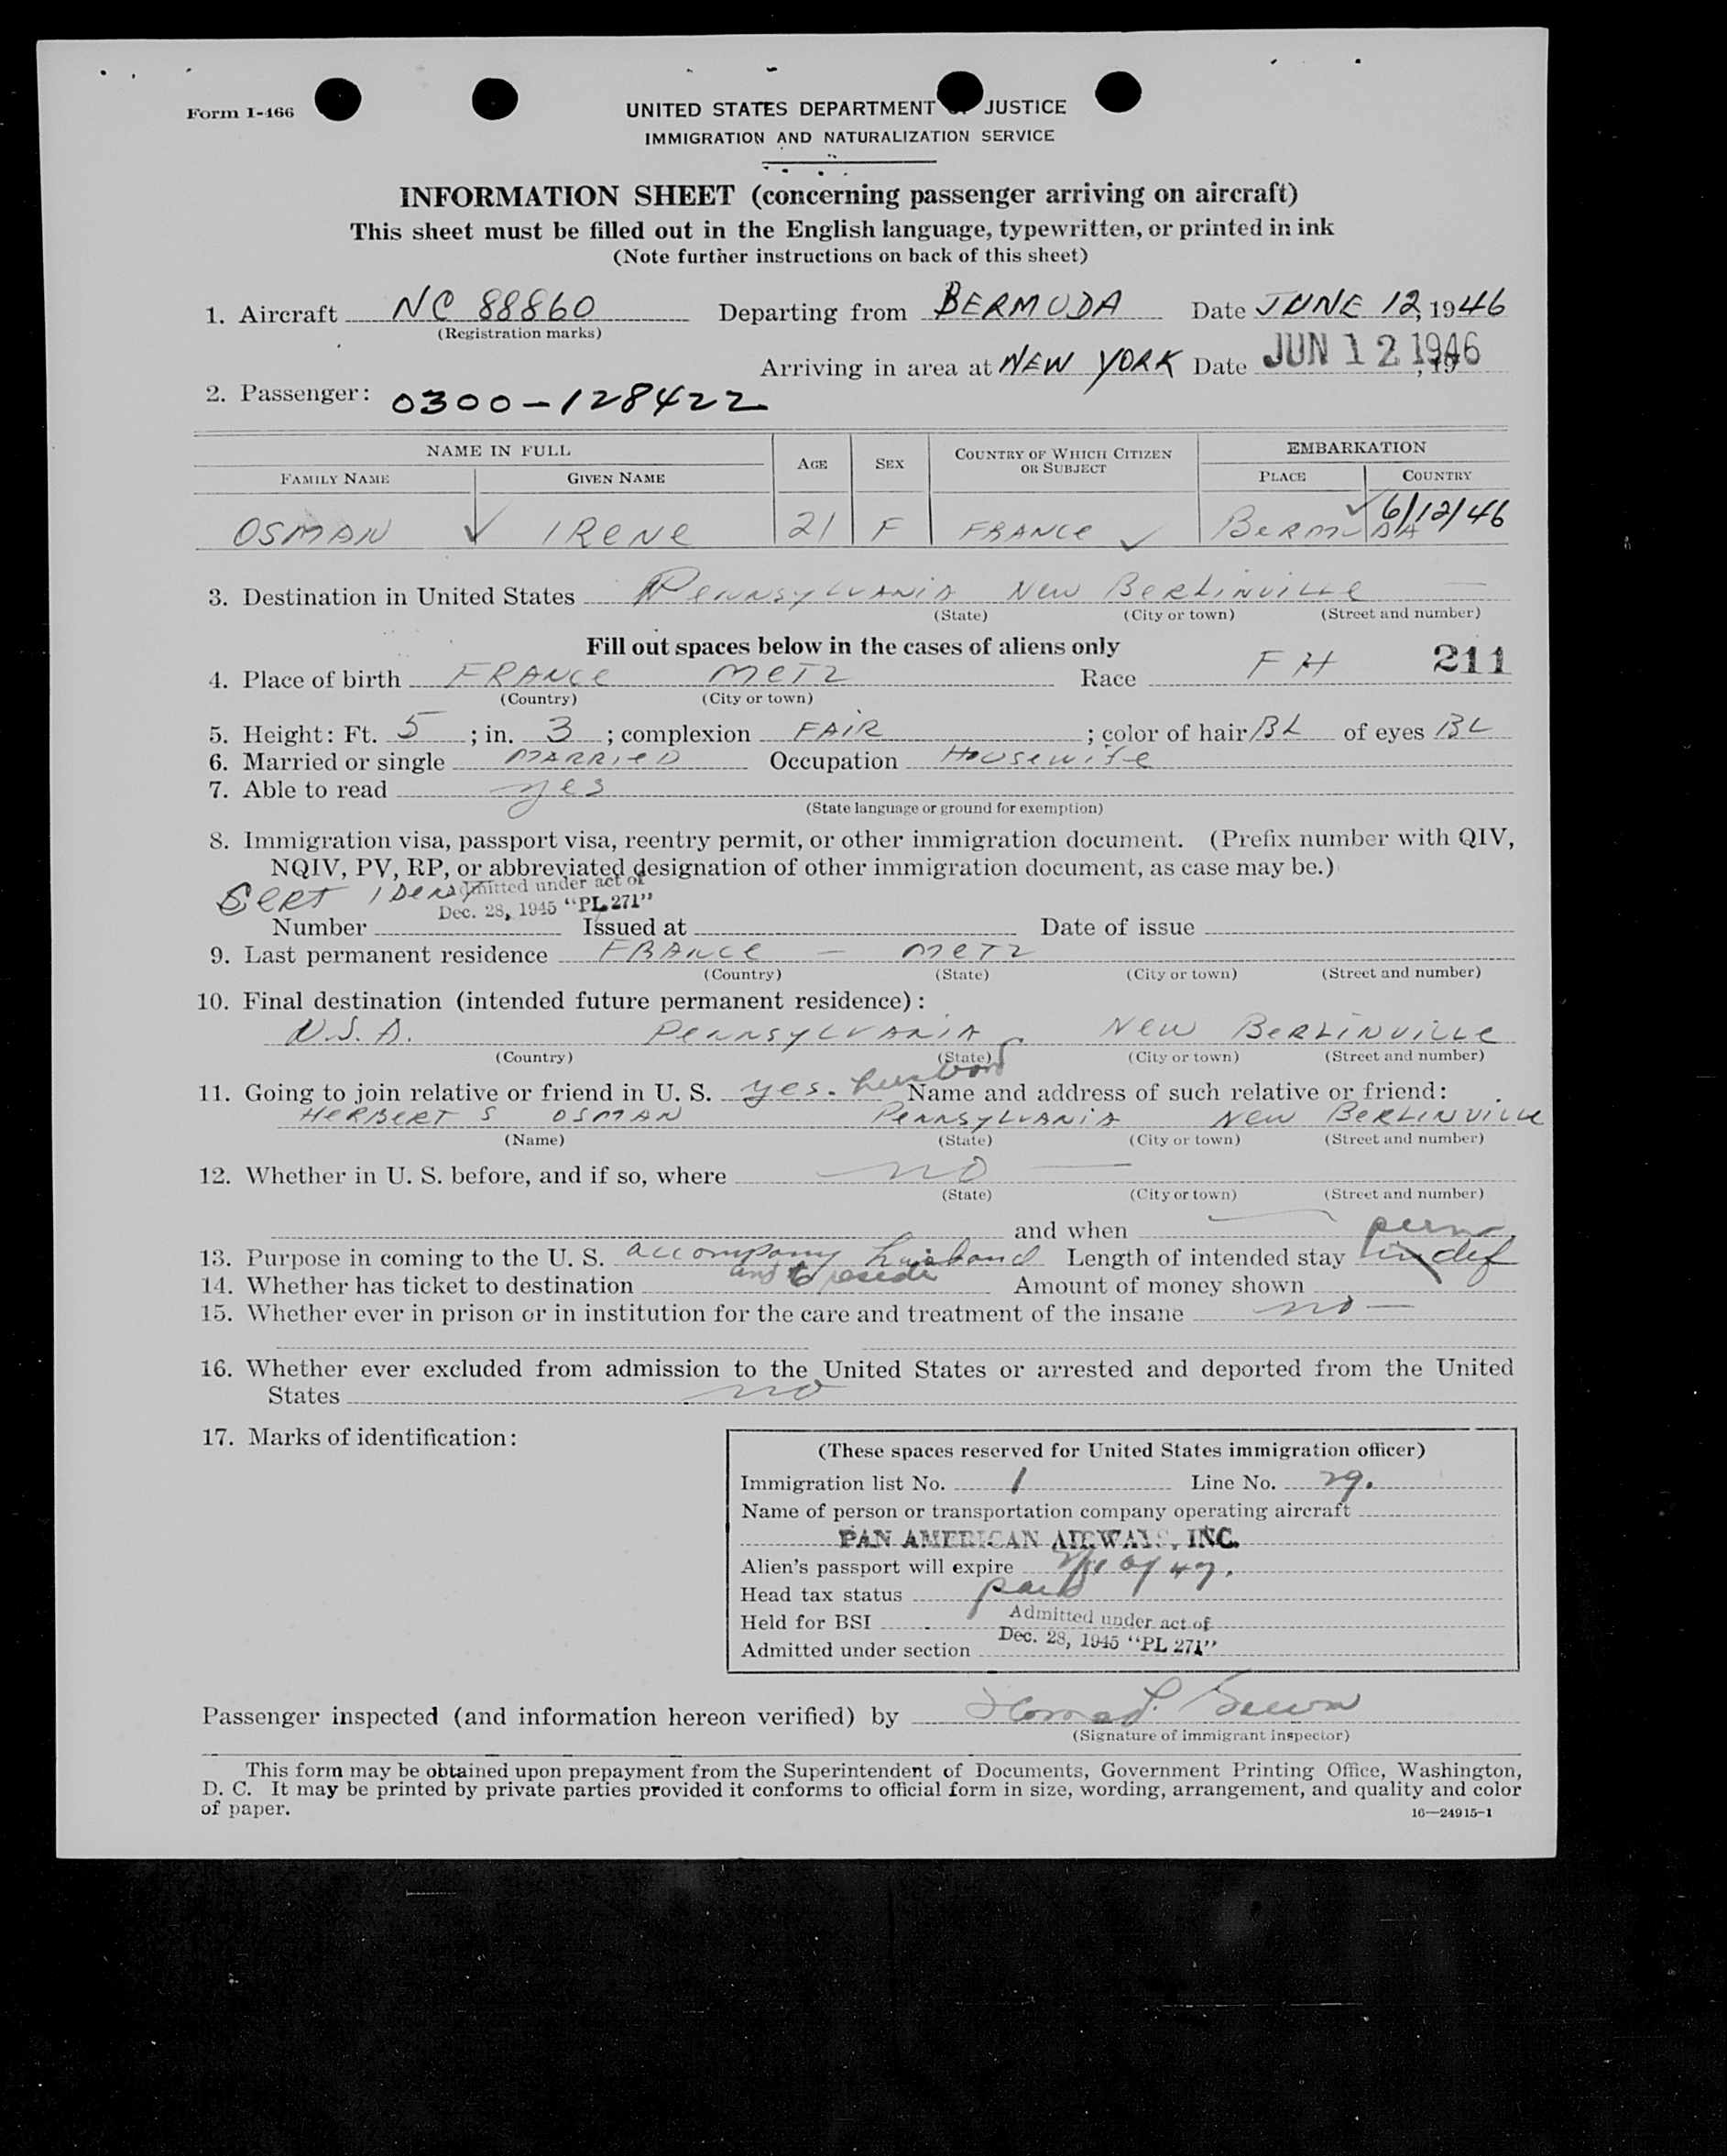 Form I-466
UNITED STATES DEPARTMENT OF JUSTICE
IMMIGRATION AND NATURALIZATION SERVICE
INFORMATION SHEET (concerning passenger arriving on aircraft)
This sheet must be filled out in the English language, typewritten, or printed in ink
(Note further instructions on back of this sheet)
1. Aircraft NC 88860 Departing from BERMUDA Date JUNE 12, 1946
(Registration marks)
Arriving in area at NEW YORK Date JUN 12 1946, 19
2. Passenger: 0300-128422
NAME IN FULL AGE SEX COUNTRY OF WHICH CITIZEN OR SUBJECT EMBARKATION
FAMILY NAME GIVEN NAME PLACE COUNTRY
6/12/46
OSMAN IRENE 21 F FRANCE BERMUDA
3. Destination in United States PENNSYLVANIA NEW BERLINVILLE —
(State) (City or town) (Street and number)
Fill out spaces below in the cases of aliens only
4. Place of birth FRANCE METZ Race F H 211
(Country) (City or town)
5. Height: Ft. 5 ; in. 3 ; complexion FAIR ; color of hair BL of eyes BL
6. Married or single MARRIED Occupation HOUSEWIFE
7. Able to read yes
(State language or ground for exemption)
8. Immigration visa, passport visa, reentry permit, or other immigration document. (Prefix number with QIV,
NQIV, PV, RP, or abbreviated designation of other immigration document, as case may be.)
CERT IDEN Admitted under act of
Dec. 28, 1945 "PL 271"
Number Issued at Date of issue
9. Last permanent residence FRANCE — METZ
(Country) (State) (City or town) (Street and number)
10. Final destination (intended future permanent residence):
U.S.A. PENNSYLVANIA NEW BERLINVILLE
(Country) (State) (City or town) (Street and number)
11. Going to join relative or friend in U. S. yes. husband Name and address of such relative or friend:
HERBERT S OSMAN PENNSYLVANIA NEW BERLINVILLE
(Name) (State) (City or town) (Street and number)
12. Whether in U. S. before, and if so, where no —
(State) (City or town) (Street and number)
and when perm
13. Purpose in coming to the U. S. accompany husband Length of intended stay indef
and to reside
14. Whether has ticket to destination Amount of money shown
15. Whether ever in prison or in institution for the care and treatment of the insane no —
16. Whether ever excluded from admission to the United States or arrested and deported from the United
States no
17. Marks of identification:
(These spaces reserved for United States immigration officer)
Immigration list No. 1 Line No. 29.
Name of person or transportation company operating aircraft
PAN AMERICAN AIRWAYS, INC.
Alien's passport will expire 47.
Head tax status paid
Held for BSI Admitted under act of
Admitted under section Dec. 28, 1945 "PL 271"
Passenger inspected (and information hereon verified) by
(Signature of immigrant inspector)
This form may be obtained upon prepayment from the Superintendent of Documents, Government Printing Office, Washington,
D. C. It may be printed by private parties provided it conforms to official form in size, wording, arrangement, and quality and color
of paper.
16—24915-1